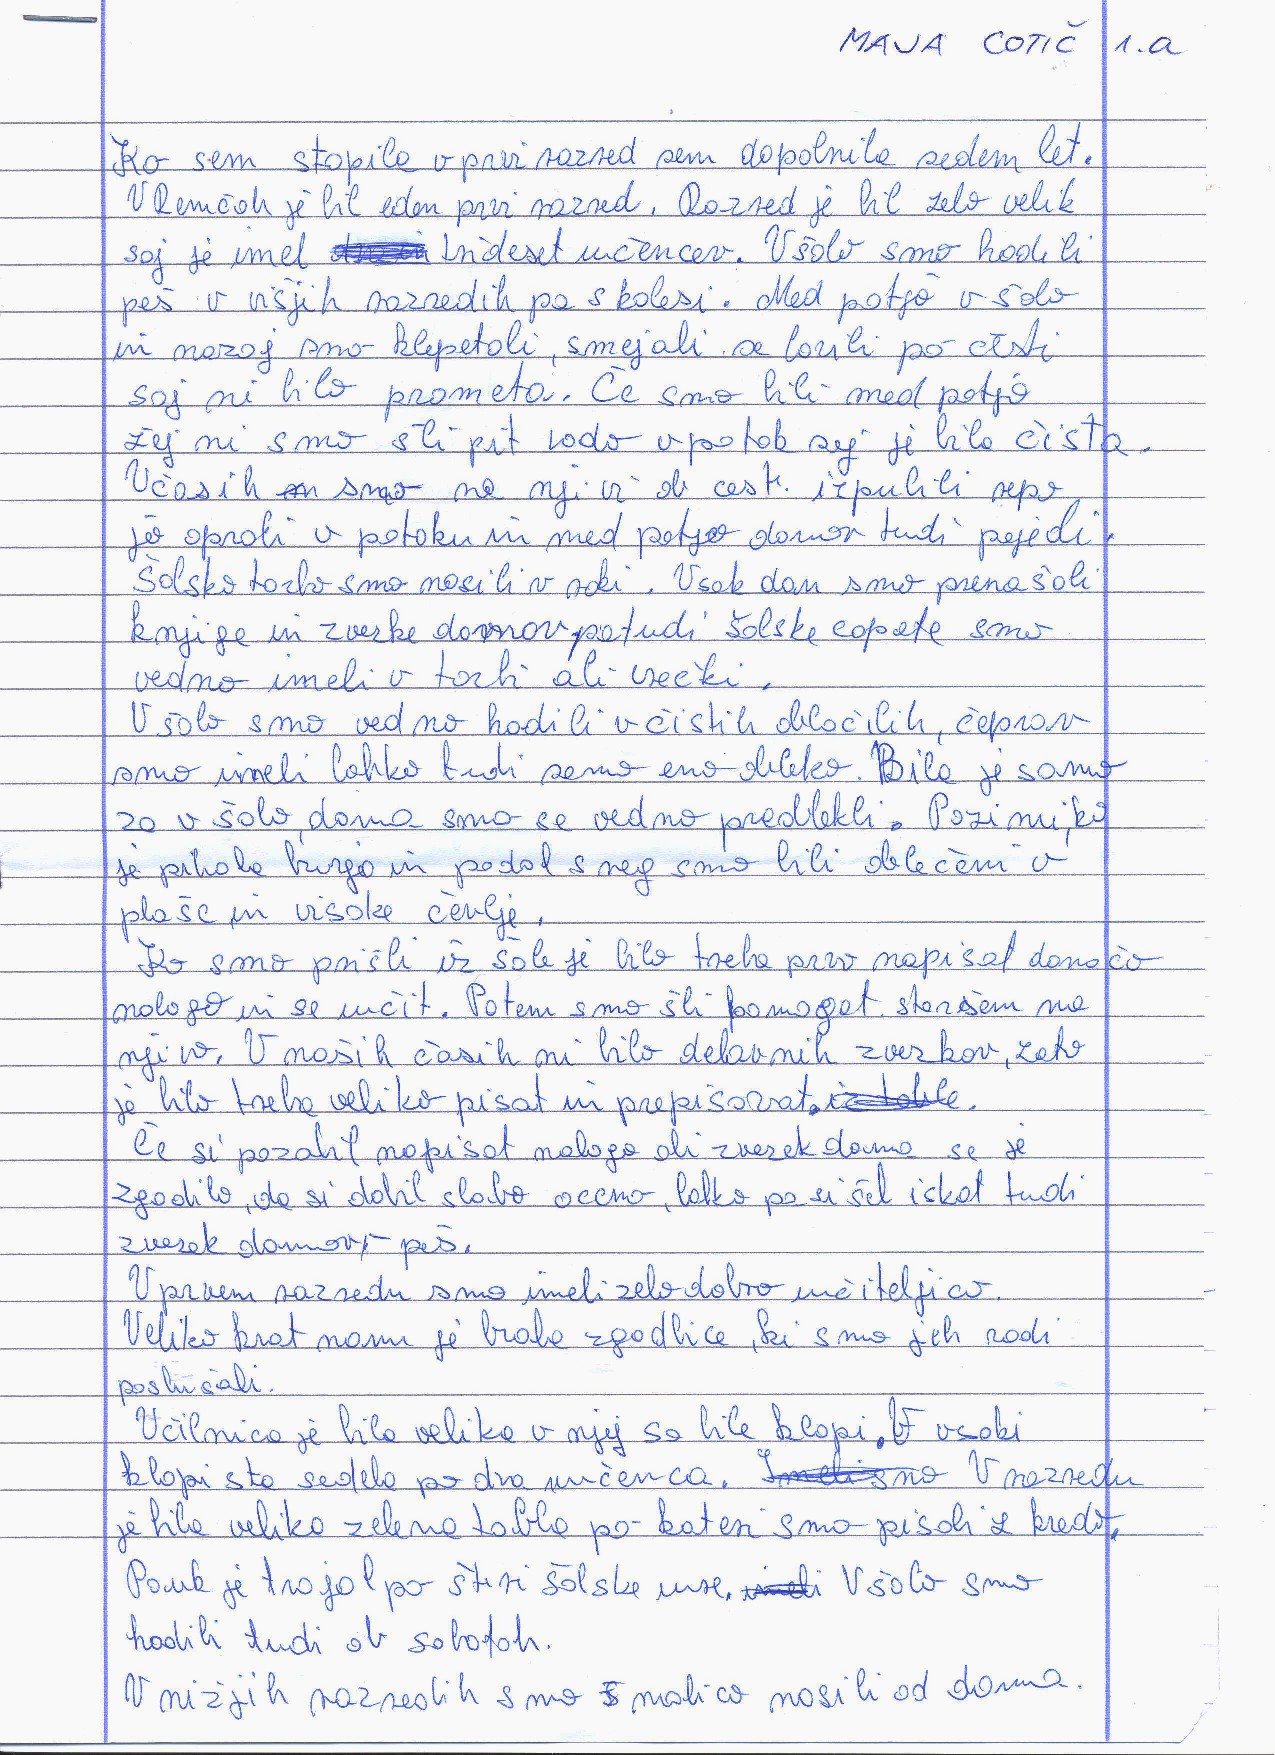 MAJA COTIČ 1.a
Ko sem stopila v prvi razred sem dopolnila sedem let.
V Remčah je bil eden prvi razred. Razred je bil zelo velik
saj je imel trideset učencev. V šolo smo hodili
peš v višjih razredih pa s kolesi. Med potjo v šolo
in nazaj smo klepetali, smejali se lovili po cesti
saj ni bilo prometa. Če smo bili med potjo
žejni smo šli pit vodo v potok saj je bila čista.
Včasih smo na njivi ob cesti izpulili repo
jo oprali v potoku in med potjo domov tudi pojedli.
Šolsko torbo smo nosili v roki. Vsak dan smo prenašali
knjige in zvezke domov pa tudi šolske copate smo
vedno imeli v torbi ali vrečki.
V šolo smo vedno hodili v čistih oblačilih, čeprav
smo imeli lahko tudi samo eno obleko. Bila je samo
za v šolo, doma smo se vedno preoblekli. Pozimi, ko
je pihala burja in padal sneg smo bili oblečeni v
plašč in visoke čevlje.
Ko smo prišli iz šole je bilo treba prvo napisat domačo
nalogo in se učit. Potem smo šli pomagat staršem na
njivo. V naših časih ni bilo delavnih zvezkov, zato
je bilo treba veliko pisat in prepisovat. iz table.
Če si pozabil napisat nalogo ali zvezek doma se je
zgodilo, da si dobil slabo oceno, lahko pa si šel iskat tudi
zvezek domov, peš.
V prvem razredu smo imeli zelo dobro učiteljico.
Veliko krat nam je brala zgodbice, ki smo jih radi
poslušali.
Učilnica je bila velika v njej so bile klopi. V vsaki
klopi sta sedela po dva učenca. Imeli smo V razredu
je bila velika zelena tabla po kateri smo pisali z kredo.
Pouk je trajal po štiri šolske ure. imeli V šolo smo
hodili tudi ob sobotah.
V nižjih razredih smo malico nosili od doma.